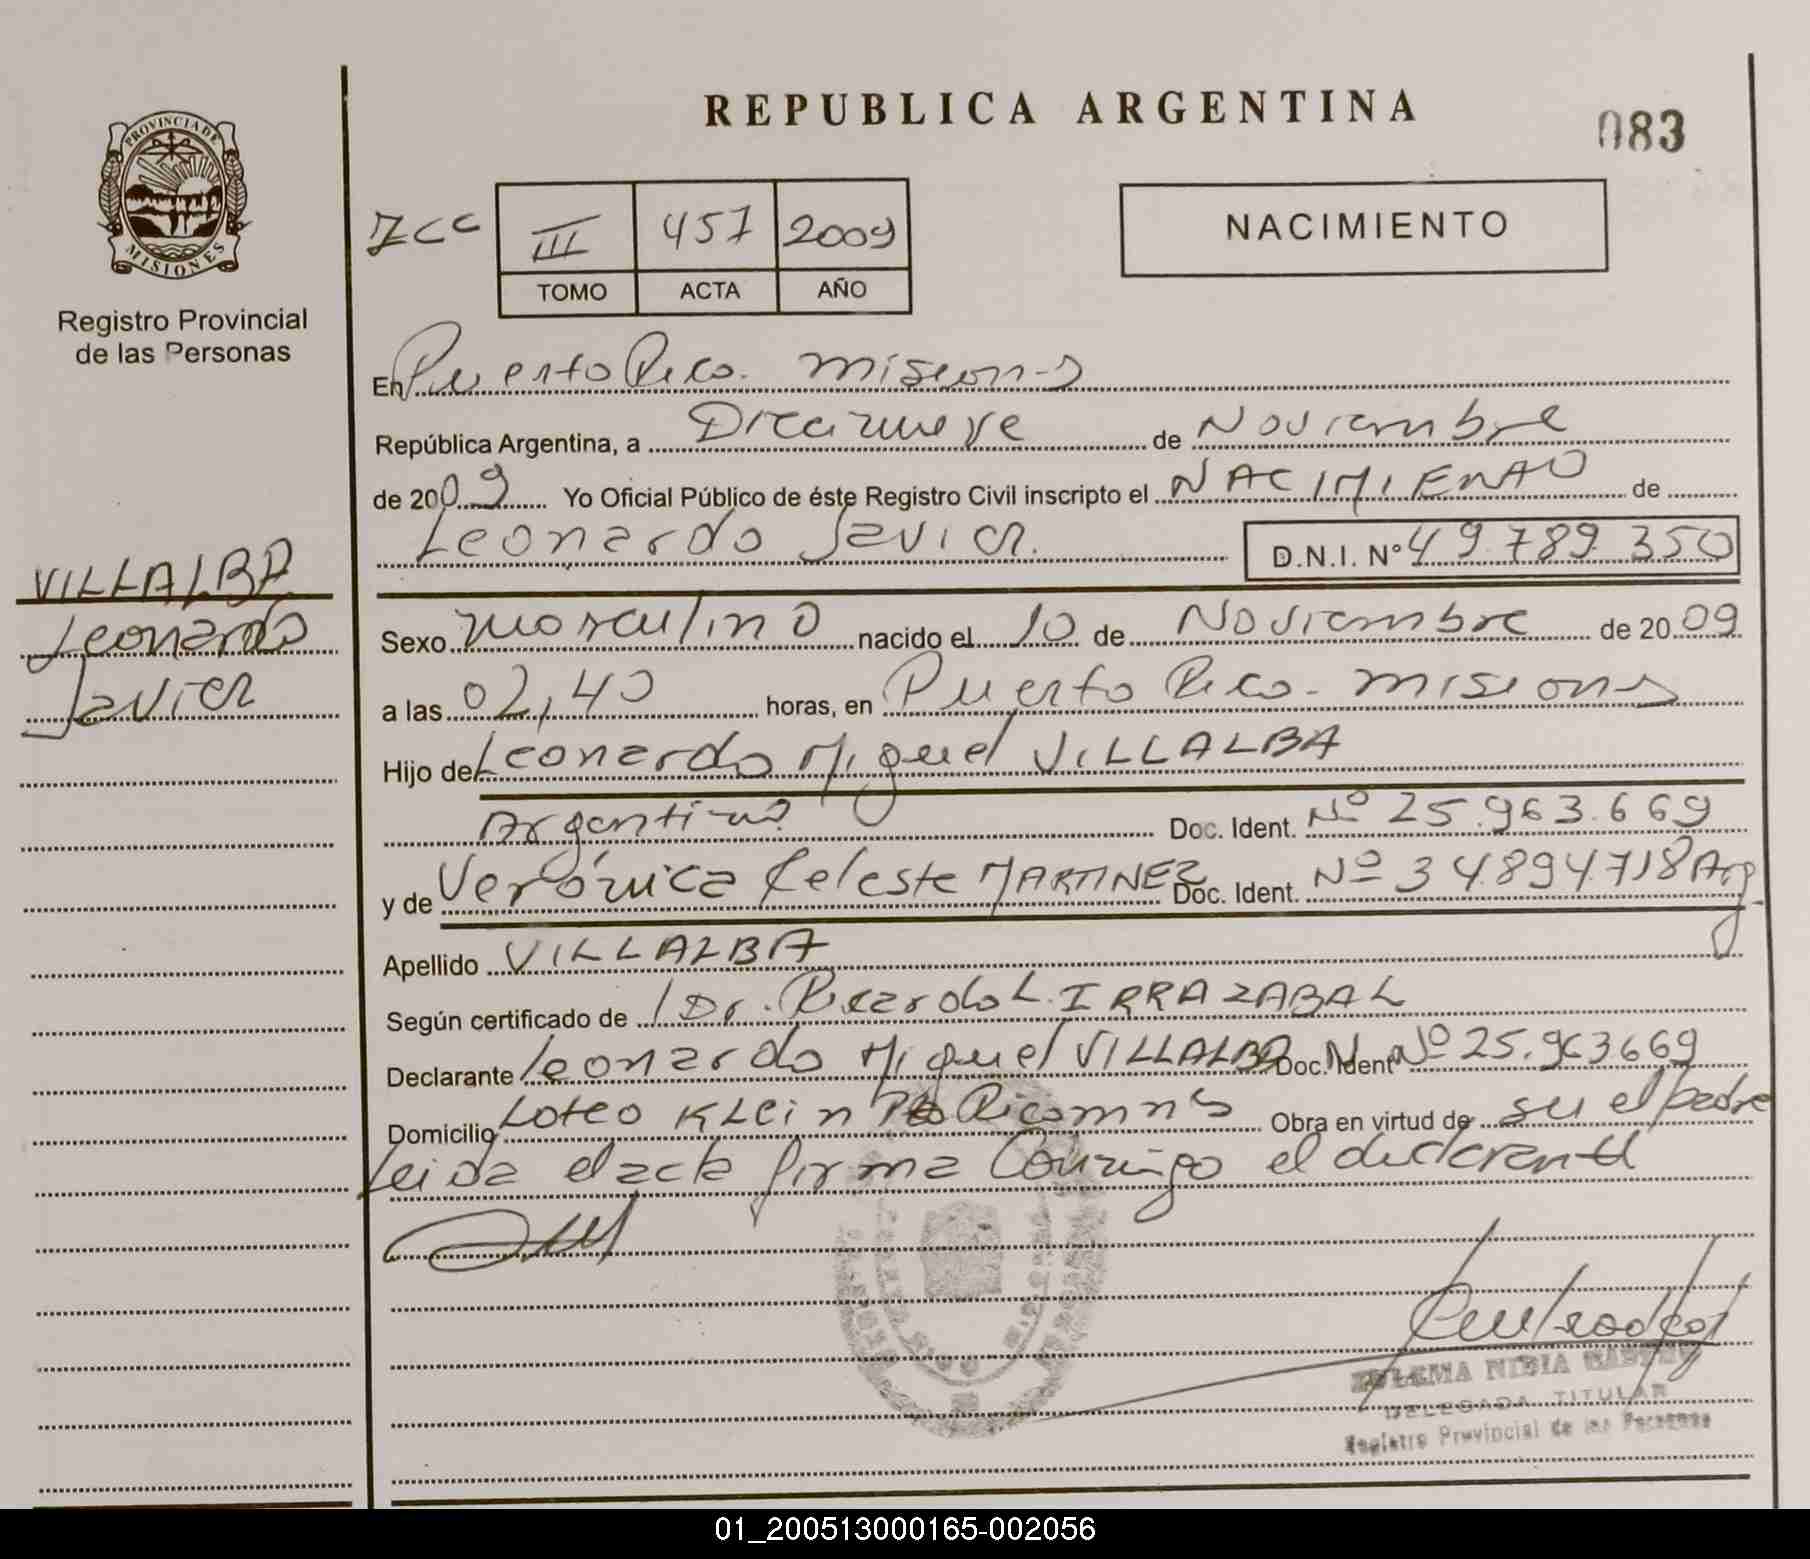 REPUBLICA ARGENTINA
083
PROVINCIA DE
MISIONES
Registro Provincial
de las Personas
III 457 2009
TOMO ACTA AÑO
NACIMIENTO
En Puerto Rico. Misiones
República Argentina, a Diecinueve de Noviembre
de 2009 Yo Oficial Público de éste Registro Civil inscripto el NACIMIENTO de
Leonardo Javier. D.N.I. Nº 49.789.350
VILLALBA
Leonardo
Javier
Sexo masculino nacido el 10 de Noviembre de 2009
a las 02,40 horas, en Puerto Rico - Misiones
Hijo de Leonardo Miguel VILLALBA
Argentino Doc. Ident. Nº 25.963.669
y de Verónica Celeste MARTINEZ Doc. Ident. Nº 34.894.718 Arg.
Apellido VILLALBA
Según certificado de Dr. Ricardo L. IRRAZABAL
Declarante Leonardo Miguel VILLALBA Doc. Ident Nº 25.963669
Domicilio Loteo Klein Pto Rico mns Obra en virtud de su el padre
Leida el acta firma conmigo el declarante
NIBIA
DELEGADA TITULAR
Registro Provincial de las Personas
01_200513000165-002056